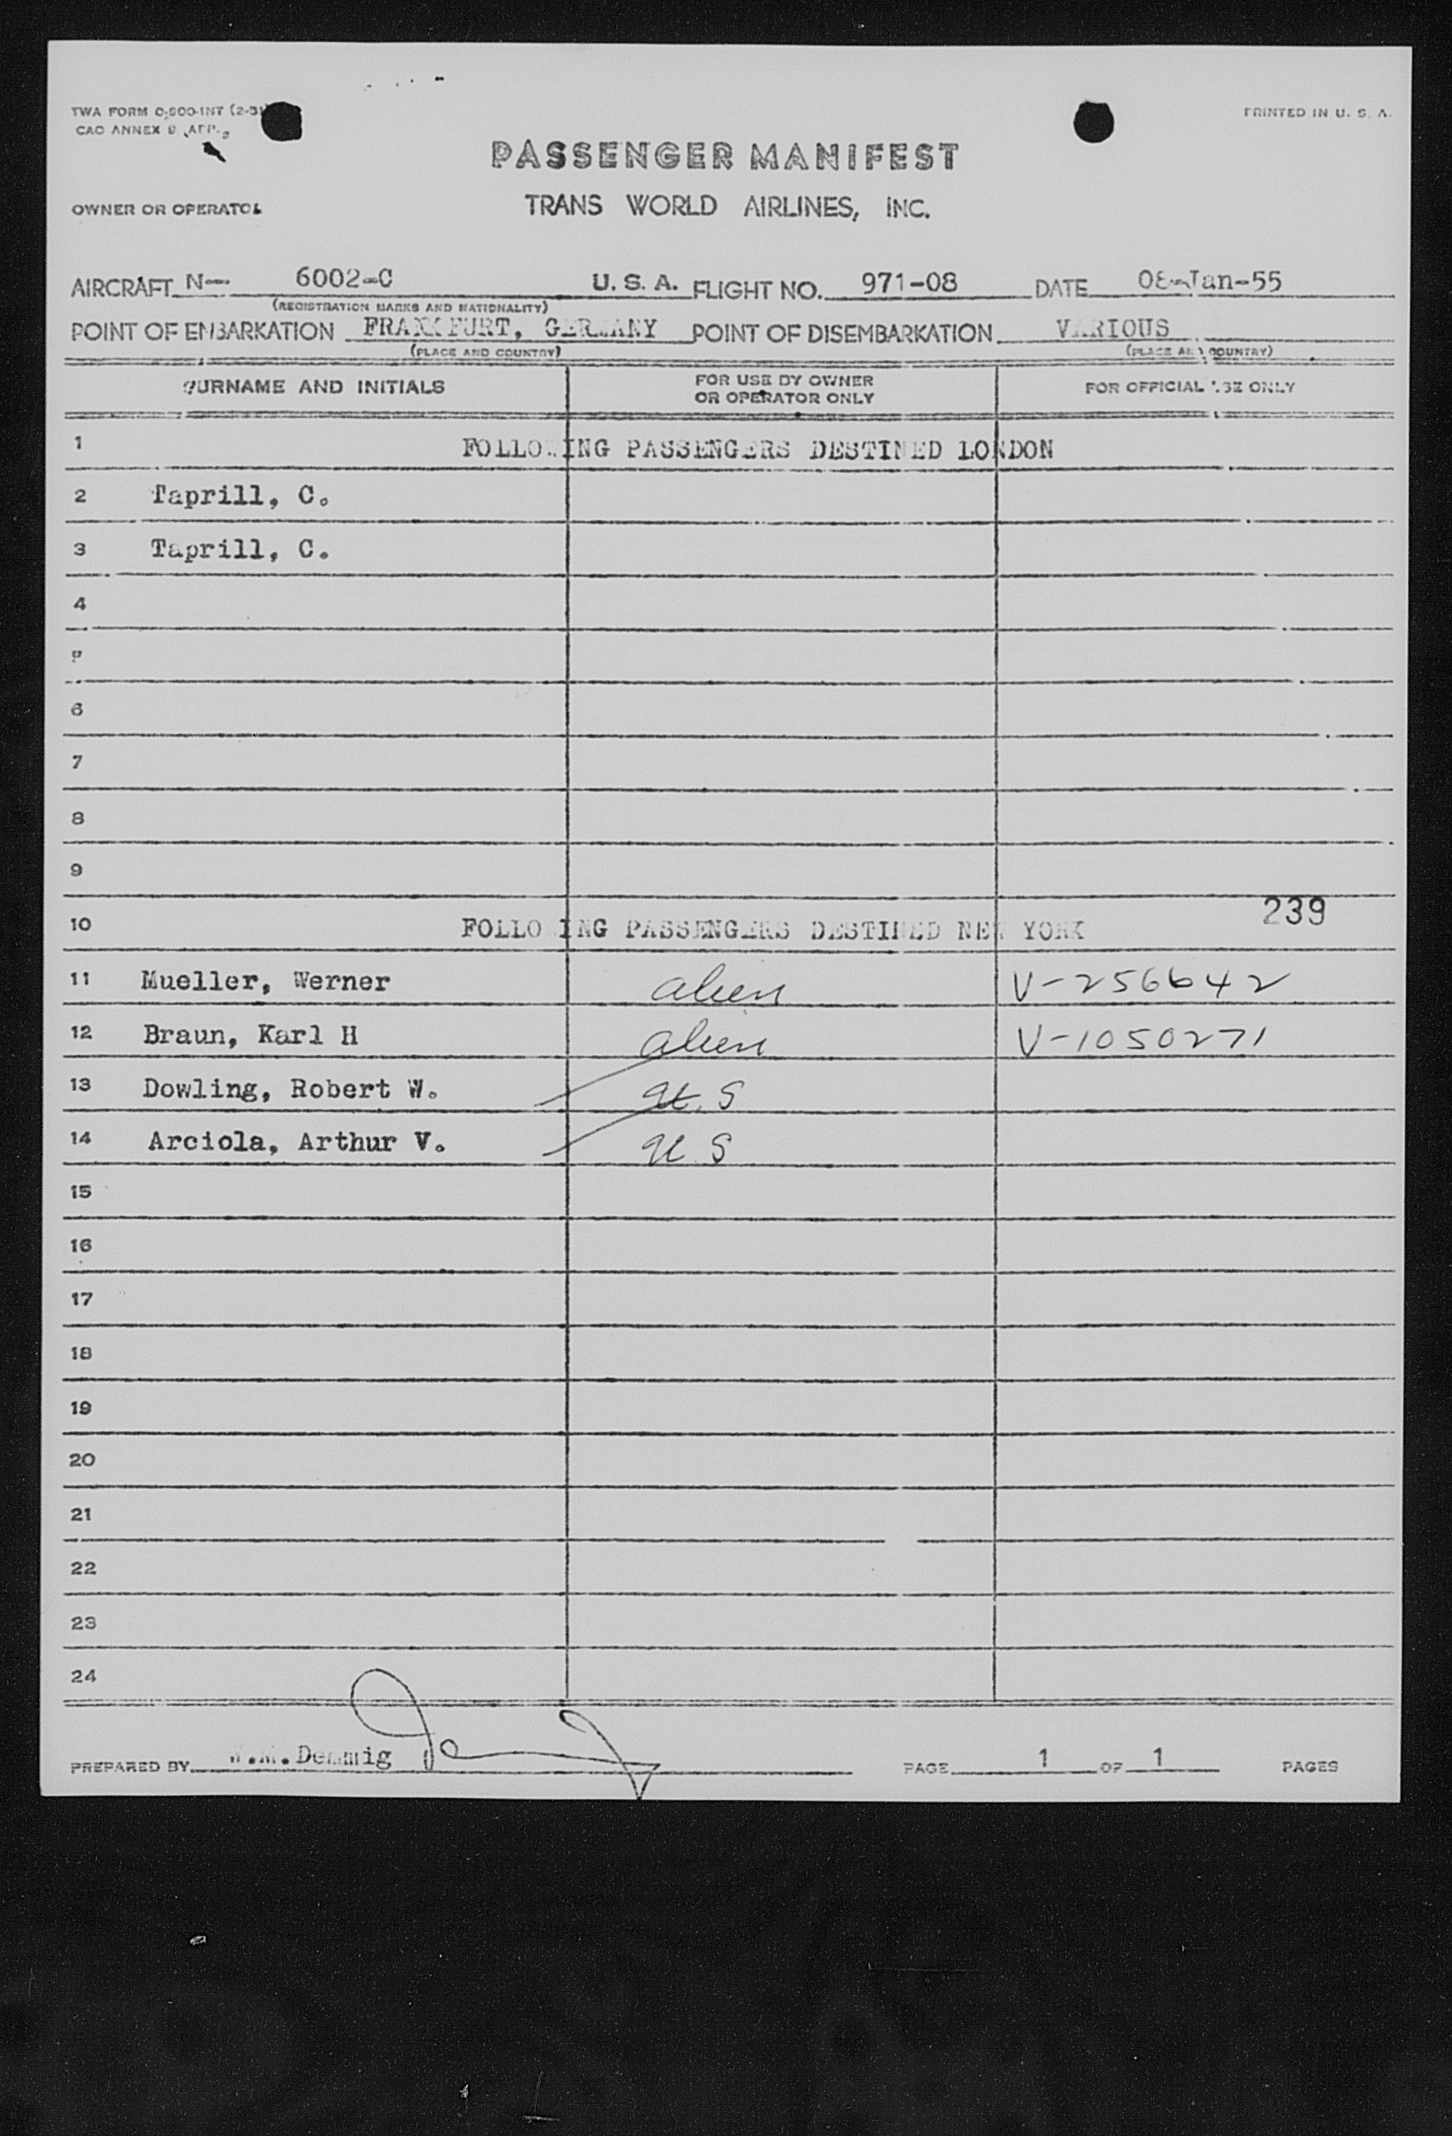 TWA FORM O-800-INT (2-51)
PRINTED IN U. S. A.
CAO ANNEX 9, APP.
PASSENGER MANIFEST
OWNER OR OPERATOR TRANS WORLD AIRLINES, INC.
AIRCRAFT N— 6002-C U. S. A. FLIGHT NO. 971-08 DATE 08-Jan-55
(REGISTRATION MARKS AND NATIONALITY)
POINT OF EMBARKATION FRANKFURT, GERMANY POINT OF DISEMBARKATION VARIOUS
(PLACE AND COUNTRY) (PLACE AND COUNTRY)
SURNAME AND INITIALS FOR USE BY OWNER OR OPERATOR ONLY FOR OFFICIAL USE ONLY
1 FOLLOWING PASSENGERS DESTINED LONDON
2 Taprill, C.
3 Taprill, C.
4
5
6
7
8
9
239
10 FOLLOWING PASSENGERS DESTINED NEW YORK
11 Mueller, Werner alien V-256642
12 Braun, Karl H alien V-1050271
13 Dowling, Robert W. U.S
14 Arciola, Arthur V. U S
15
16
17
18
19
20
21
22
23
24
PREPARED BY W.M.Demmig PAGE 1 OF 1 PAGES